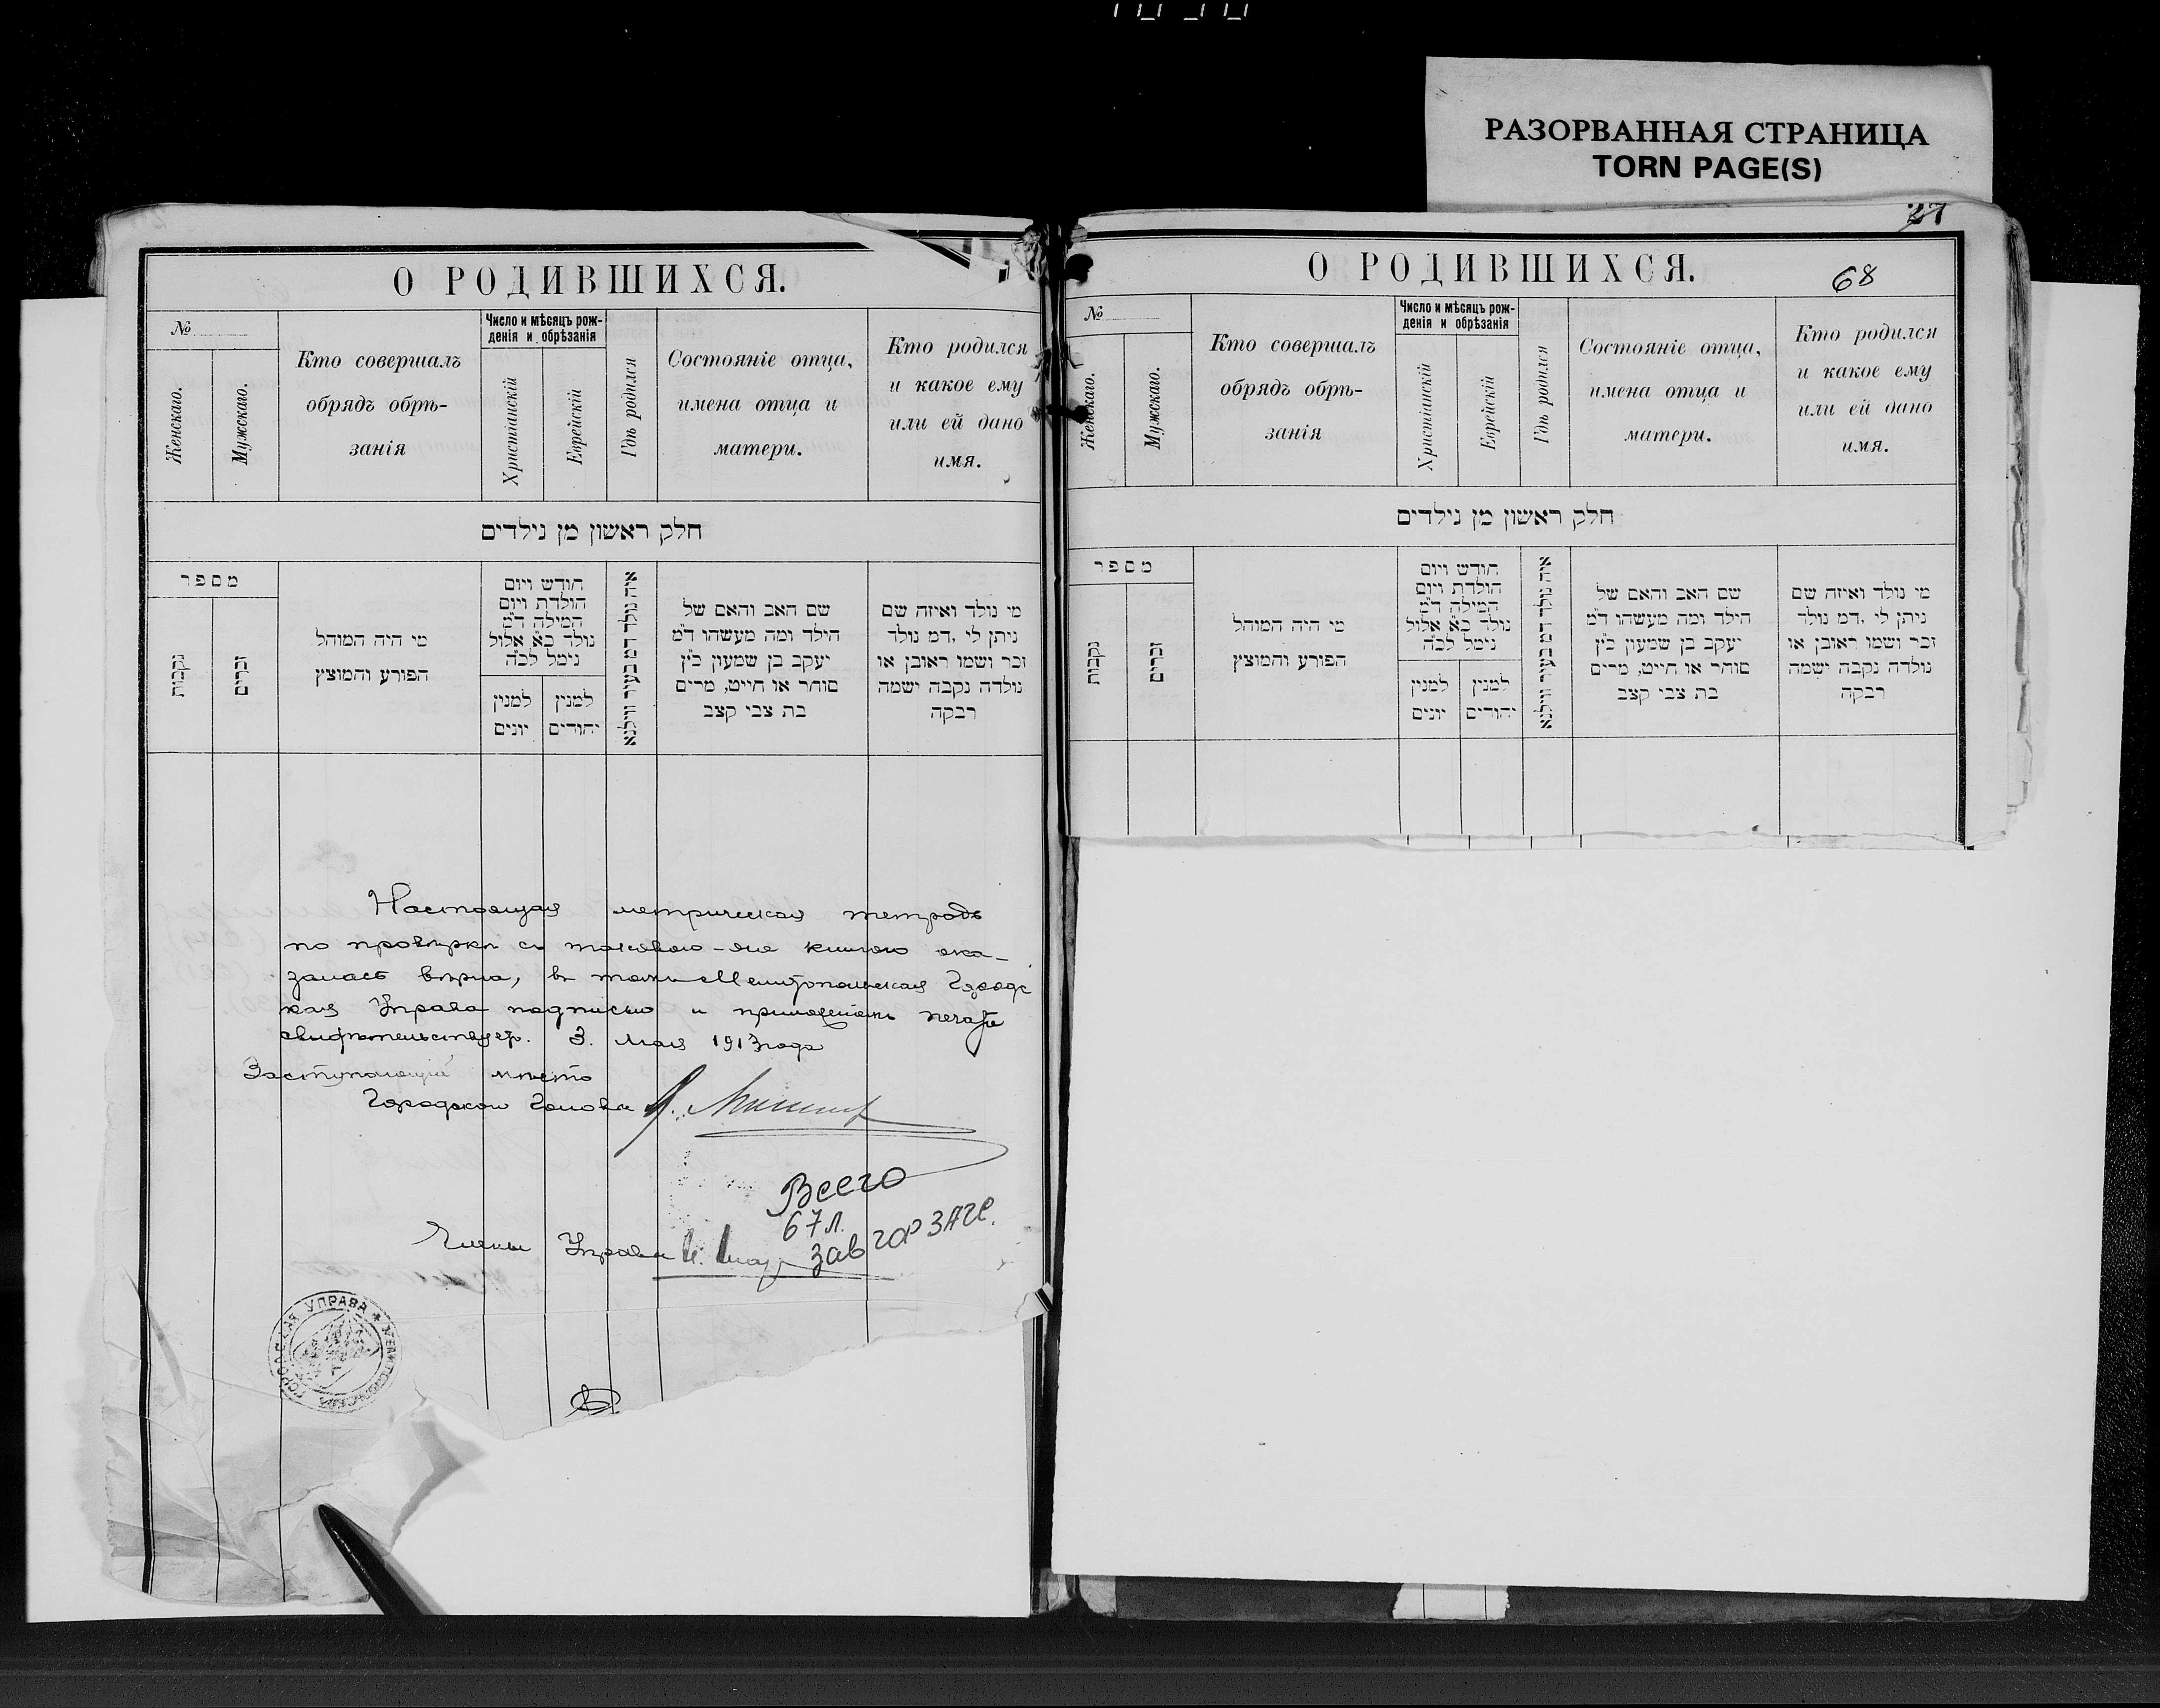 РАЗОРВАННАЯ СТРАНИЦА
TORN PAGE(S)
О РОДИВШИХСЯ.
№
Женскаго.
Мужскаго.
Кто совершалъ
обрядъ обрѣ-
занія
Число и мѣсяцъ рож-
денія и обрѣзанія
Христіанскій
Еврейскій
Гдѣ родился
Состояніе отца,
имена отца и
матери.
Кто родился
и какое ему
или ей дано
имя.
חלק ראשון מן נילדים
מספר
נקבות
זכרים
מי היה המוהל
הפורע והמוצץ
חודש ויום
הולדת ויום
המילה ד״מ
נולד כ״א אלול
נימל לכ״ה
למנין
יונים
למנין
יהודים
איה נולד דמ בעיר ווילנא
שם האב והאם של
הילד ומה מעשהו ד״מ
יעקב בן שמעון כ״ץ
סוחר או חייט, מרים
בת צבי קצב
מי נולד ואיזה שם
ניתן לי ,דמ נולד
זכר ושמו ראובן או
נולדה נקבה ישמה
רבקה
Настоящая метрическая тетрадь
по провѣркѣ съ таковою-же книгою ока-
залась вѣрна, въ томъ Мелитопольская Городс
кая Управа подписью и приложеніемъ печати
свидѣтельствуетъ. 3. Мая 1913 года
Заступающій мѣсто
Городского Головы
Всего
67 л.
Зав гор ЗАГС.
Члены Управы
МЕЛИТОПОЛЬСКАЯ ГОРОДСКАЯ УПРАВА
27
О РОДИВШИХСЯ.
68
№
Женскаго.
Мужскаго.
Кто совершалъ
обрядъ обрѣ-
занія
Число и мѣсяцъ рож-
денія и обрѣзанія
Христіанскій
Еврейскій
Гдѣ родился
Состояніе отца,
имена отца и
матери.
Кто родился
и какое ему
или ей дано
имя.
חלק ראשון מן נילדים
מספר
נקבות
זכרים
מי היה המוהל
הפורע והמוצץ
חודש ויום
הולדת ויום
המילה ד״מ
נולד כ״א אלול
נימל לכ״ה
למנין
יונים
למנין
יהודים
איה נולד דמ בעיר ווילנא
שם האב והאם של
הילד ומה מעשהו ד״מ
יעקב בן שמעון כ״ץ
סוחר או חייט, מרים
בת צבי קצב
מי נולד ואיזה שם
ניתן לי ,דמ נולד
זכר ושמו ראובן או
נולדה נקבה ישמה
רבקה